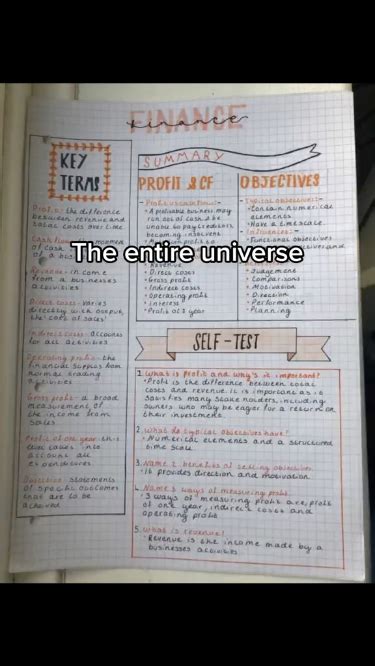 FINANCE
finance
KEY
TERMS
Profit - the difference
between revenue and
total costs over time
of cash
of a
Revenue - income
from a businesses
activities
Direct costs - varies
directly with output,
the 'cost of sales'
Indirect costs - accounts
for all activities
Operating profit - the
financial surplus from
normal trading
activities
Gross profit - a broad
measurement of
the income from
sales
Profit of year - this
takes into
account all
expenditures
Objective - statements
of specific outcomes
that are to be
achieved
SUMMARY
PROFIT & CF
A profitable business may
run out of cash & be
unable to pay creditors
becoming insolvent
Revenue
Direct costs
Gross profit
Indirect costs
Operating profit
Interest
Profit of year
OBJECTIVES
Typical objectives:-
Contain numerical
elements
Have a timescale
Influences:-
Functional objectives
Judgement
Comparisons
Motivation
Direction
Performance
Planning
The entire universe
SELF-TEST
1. What is profit and why's it important?
Profit is the difference between total
costs and revenue. it is important as it
satisfies many stake holders, including
owners who may be eager for a return on
their investment.
2. What do typical objectives have?
Numerical elements and a structured
time scale
3. Name 2 benefits of setting objectives
it provides direction and motivation
4. Name 3 ways of measuring profit
3 ways of measuring profit are, profit
of one year, indirect costs and
operating profit
5. What is revenue?
Revenue is the income made by a
businesses activities